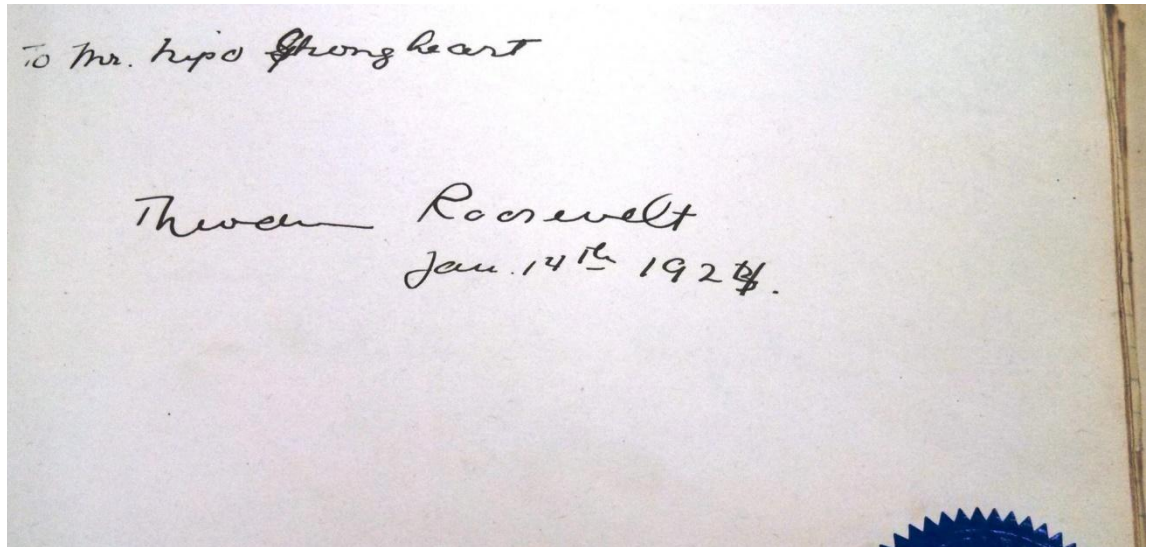 To Mr. Nipo Strongheart
Theodore Roosevelt
Jan. 14th 1924.